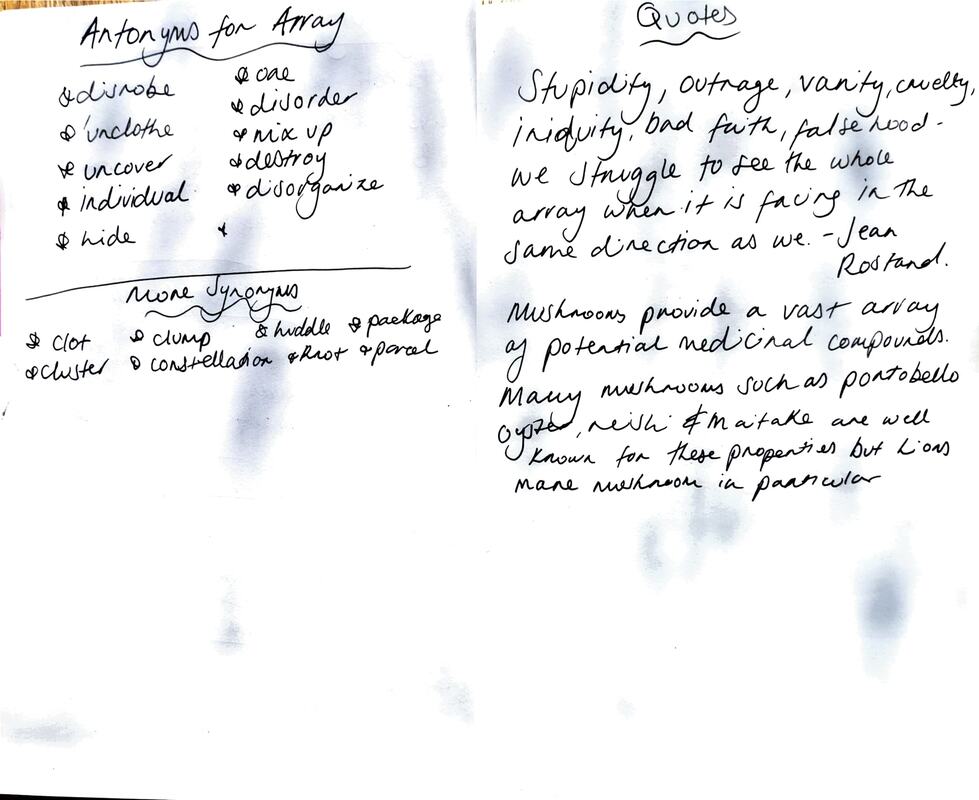 Antonyms for Array
* disrobe
* unclothe
* uncover
* individual
* hide
* one
* disorder
* mix up
* destroy
* disorganize
*
More Synonyms
* clot * clump * huddle * package
* cluster * constellation * knot * parcel
Quotes
Stupidity, outrage, vanity, cruelty,
iniquity, bad faith, falsehood -
we struggle to see the whole
array when it is facing in the
same direction as we. - Jean
Rostand.
Mushrooms provide a vast array
of potential medicinal compounds.
Many mushrooms such as portobello
oyster, reishi & Maitake are well
known for these properties but Lions
mane mushroom in particular